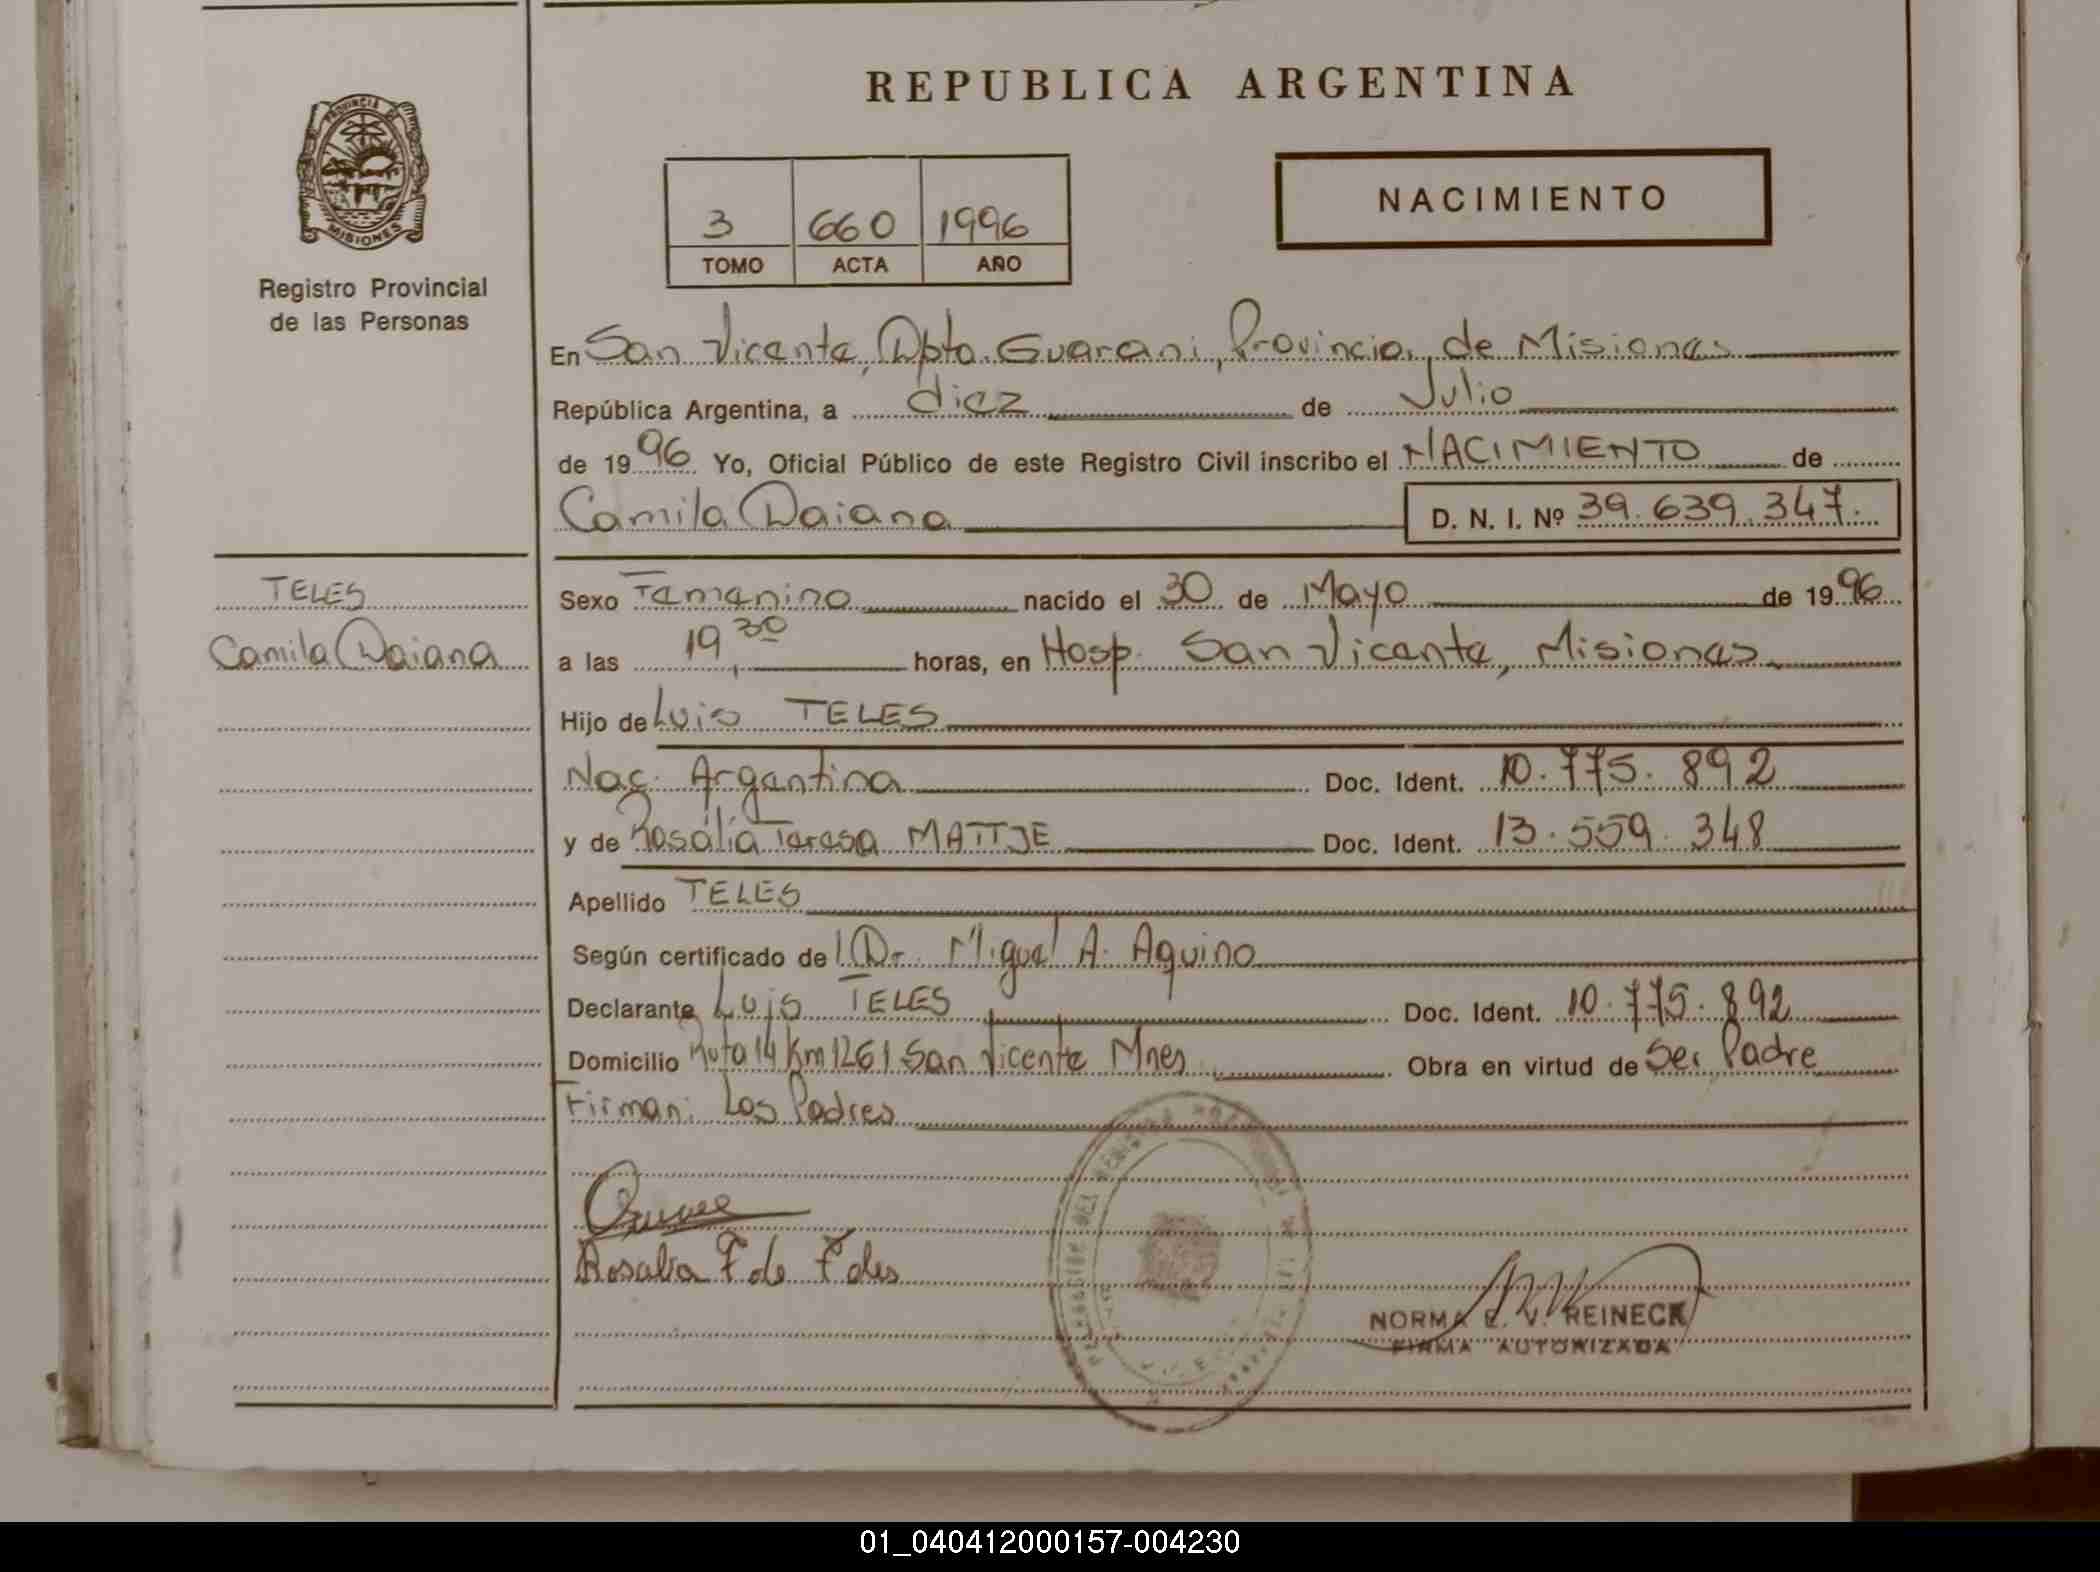 PROVINCIA DE
MISIONES
Registro Provincial
de las Personas
REPUBLICA ARGENTINA
3 660 1996
TOMO ACTA AÑO
NACIMIENTO
En San Vicente, Dpto. Guarani, Provincia de Misiones
República Argentina, a diez de Julio
de 1996 Yo, Oficial Público de este Registro Civil inscribo el NACIMIENTO de
Camila Daiana D. N. I. Nº 39.639.347.
TELES
Camila Daiana
Sexo Femenino nacido el 30 de Mayo de 1996
a las 19,30 horas, en Hosp. San Vicente, Misiones
Hijo de Luis TELES
Nac. Argentina Doc. Ident. 10.775.892
y de Rosalia Teresa MATTJE Doc. Ident. 13.559.348
Apellido TELES
Según certificado de Dr. Miguel A. Aquino
Declarante Luis TELES Doc. Ident. 10.775.892
Domicilio Ruta 14 Km 1261 San Vicente Mnes Obra en virtud de Ser Padre
Firman: Los Padres
Rosalia T de Teles
NORMA E. V. REINECK
FIRMA AUTORIZADA
01_040412000157-004230